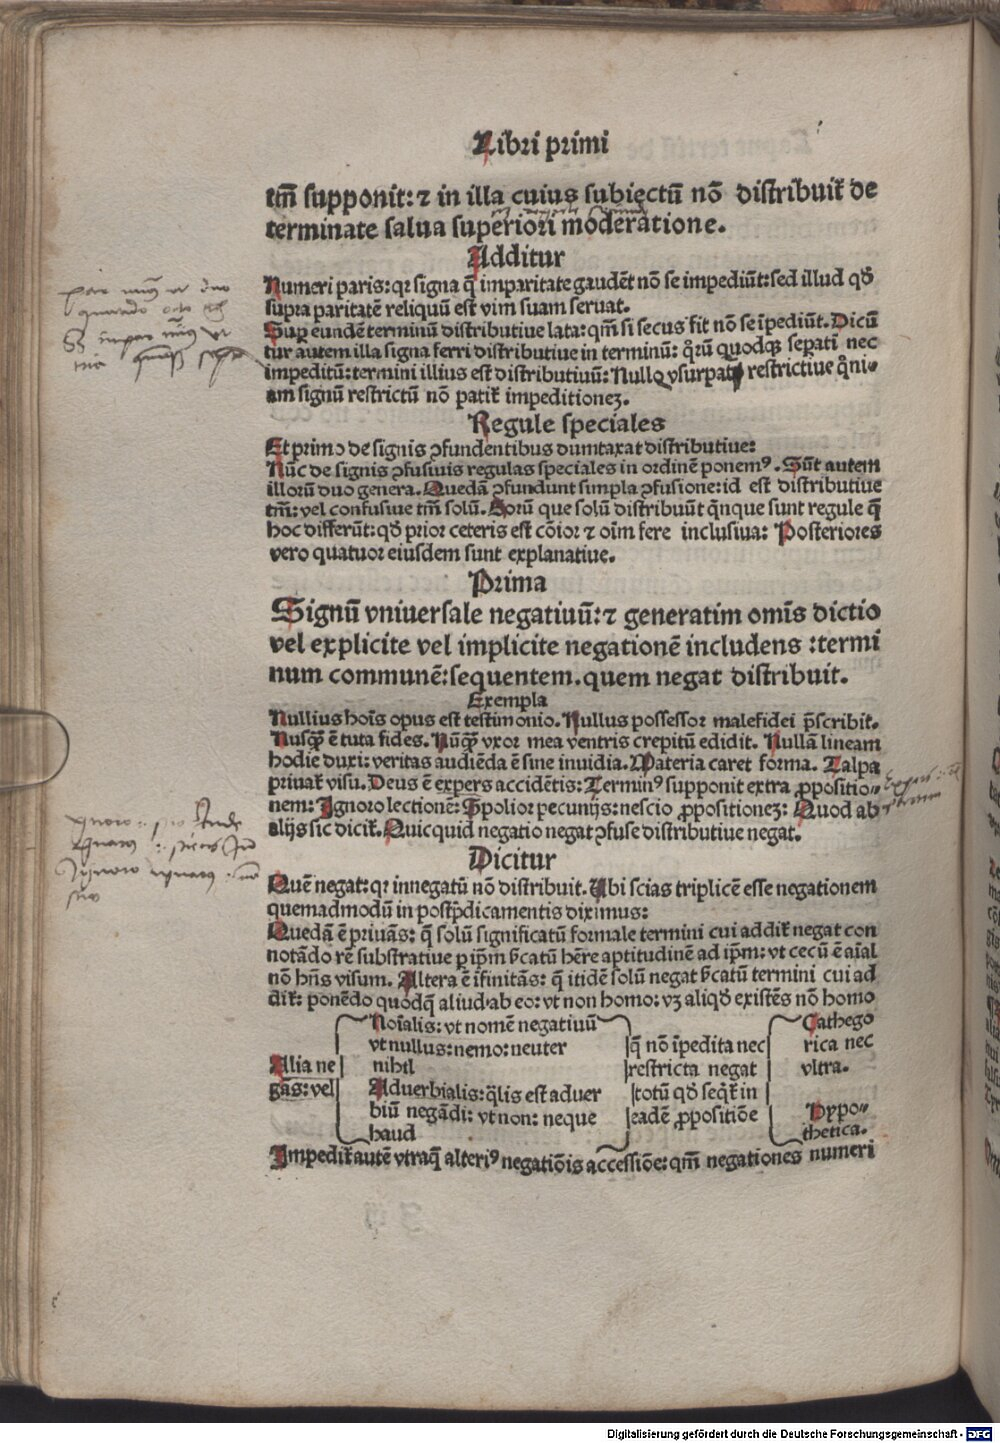 Libri primi
tm̄ supponit: ⁊ in illa cuius subiectū nō distribuit̄ de
terminate salua superiori moderatione.
Additur
Numeri paris: qꝛ signa q̄ imparitate gaudēt nō se impediūt: sed illud qd̄
supra paritatē reliquū est vim suam seruat.
Suꝑ eundē terminū distributiue lata: qm̄ si secus fit nō se īpediūt. Dicū
tur autem illa signa ferri distributiue in terminū: qꝛū quodqꝫ seꝑati nec
impeditū: termini illius est distributiuū: Nulloqꝫ vsurpat̄ restrictiue q̄ni-
am signū restrictū nō patit̄ impeditioneꝫ.
Regule speciales
Et primo de signis ꝯfundentibus dumtaxat distributiue:
Nūc de signis ꝯfusiuis regulas speciales in ordinē ponemꝰ. Sūt autem
illorū duo genera. Quedā ꝯfundunt simpla ꝯfusione: id est distributiue
tm̄: vel confusiue tm̄ solū. Eorū que solū distribuūt qnque sunt regule q̄
hoc differūt: qd̄ prior ceteris est cōior ⁊ oīm fere inclusiua: Posteriores
vero quatuor eiusdem sunt explanatiue.
Prima
Signū vniuersale negatiuū: ⁊ generatim omīs dictio
vel explicite vel implicite negationē includens: termi
num communē: sequentem. quem negat distribuit.
Exempla
Nullius hoīs opus est testimonio. Nullus possessor malefidei p̄scribit.
Nusqꝫ̄ ē tuta fides. Nūqꝫ̄ vxor mea ventris crepitū edidit. Nullā lineam
hodie duxi: veritas audiēda ē sine inuidia. Materia caret forma. Talpa
priuat̄ visu. Deus ē expers accidētis: Terminꝰ supponit extra ꝓpositio-
nem: Ignoro lectionē: Spolior pecunijs: nescio ꝓpositioneꝫ: Quod ab
alijs sic dicit̄. Quicquid negatio negat ꝯfuse distributiue negat.
Dicitur
Quē negat: qꝛ innegatū nō distribuit. Ubi scias triplicē esse negationem
quemadmodū in postp̄dicamentis diximus:
Quedā ē priuās: q̄ solū significatū formale termini cui addit̄ negat con
notādo rē substratiue ꝑ ip̄m sc̄atū hēre aptitudinē ad ip̄m: vt cecū ē aīal
nō hn̄s visum. Altera ē īfinitās: q̄ itidē solū negat sc̄atū termini cui ad
dit̄: ponēdo quodqꝫ aliud ab eo: vt non homo: vꝫ aliqd̄ existēs nō homo
Alia ne
gās: vel
Noīalis: vt nomē negatiuū
vt nullus: nemo: neuter
nihil
Aduerbialis: q̄lis est aduer
biū negādi: vt non: neque
haud
q̄ nō īpedita nec
restricta negat
totū qd̄ seqt̄ in
eadē ꝓpositiōe
Cathego
rica nec
vltra.
Hypo-
thetica.
Impedit̄ autē vtraqꝫ alteriꝰ negatiōis accessiōe: qm̄ negationes numeri
Digitalisierung gefördert durch die Deutsche Forschungsgemeinschaft - DFG